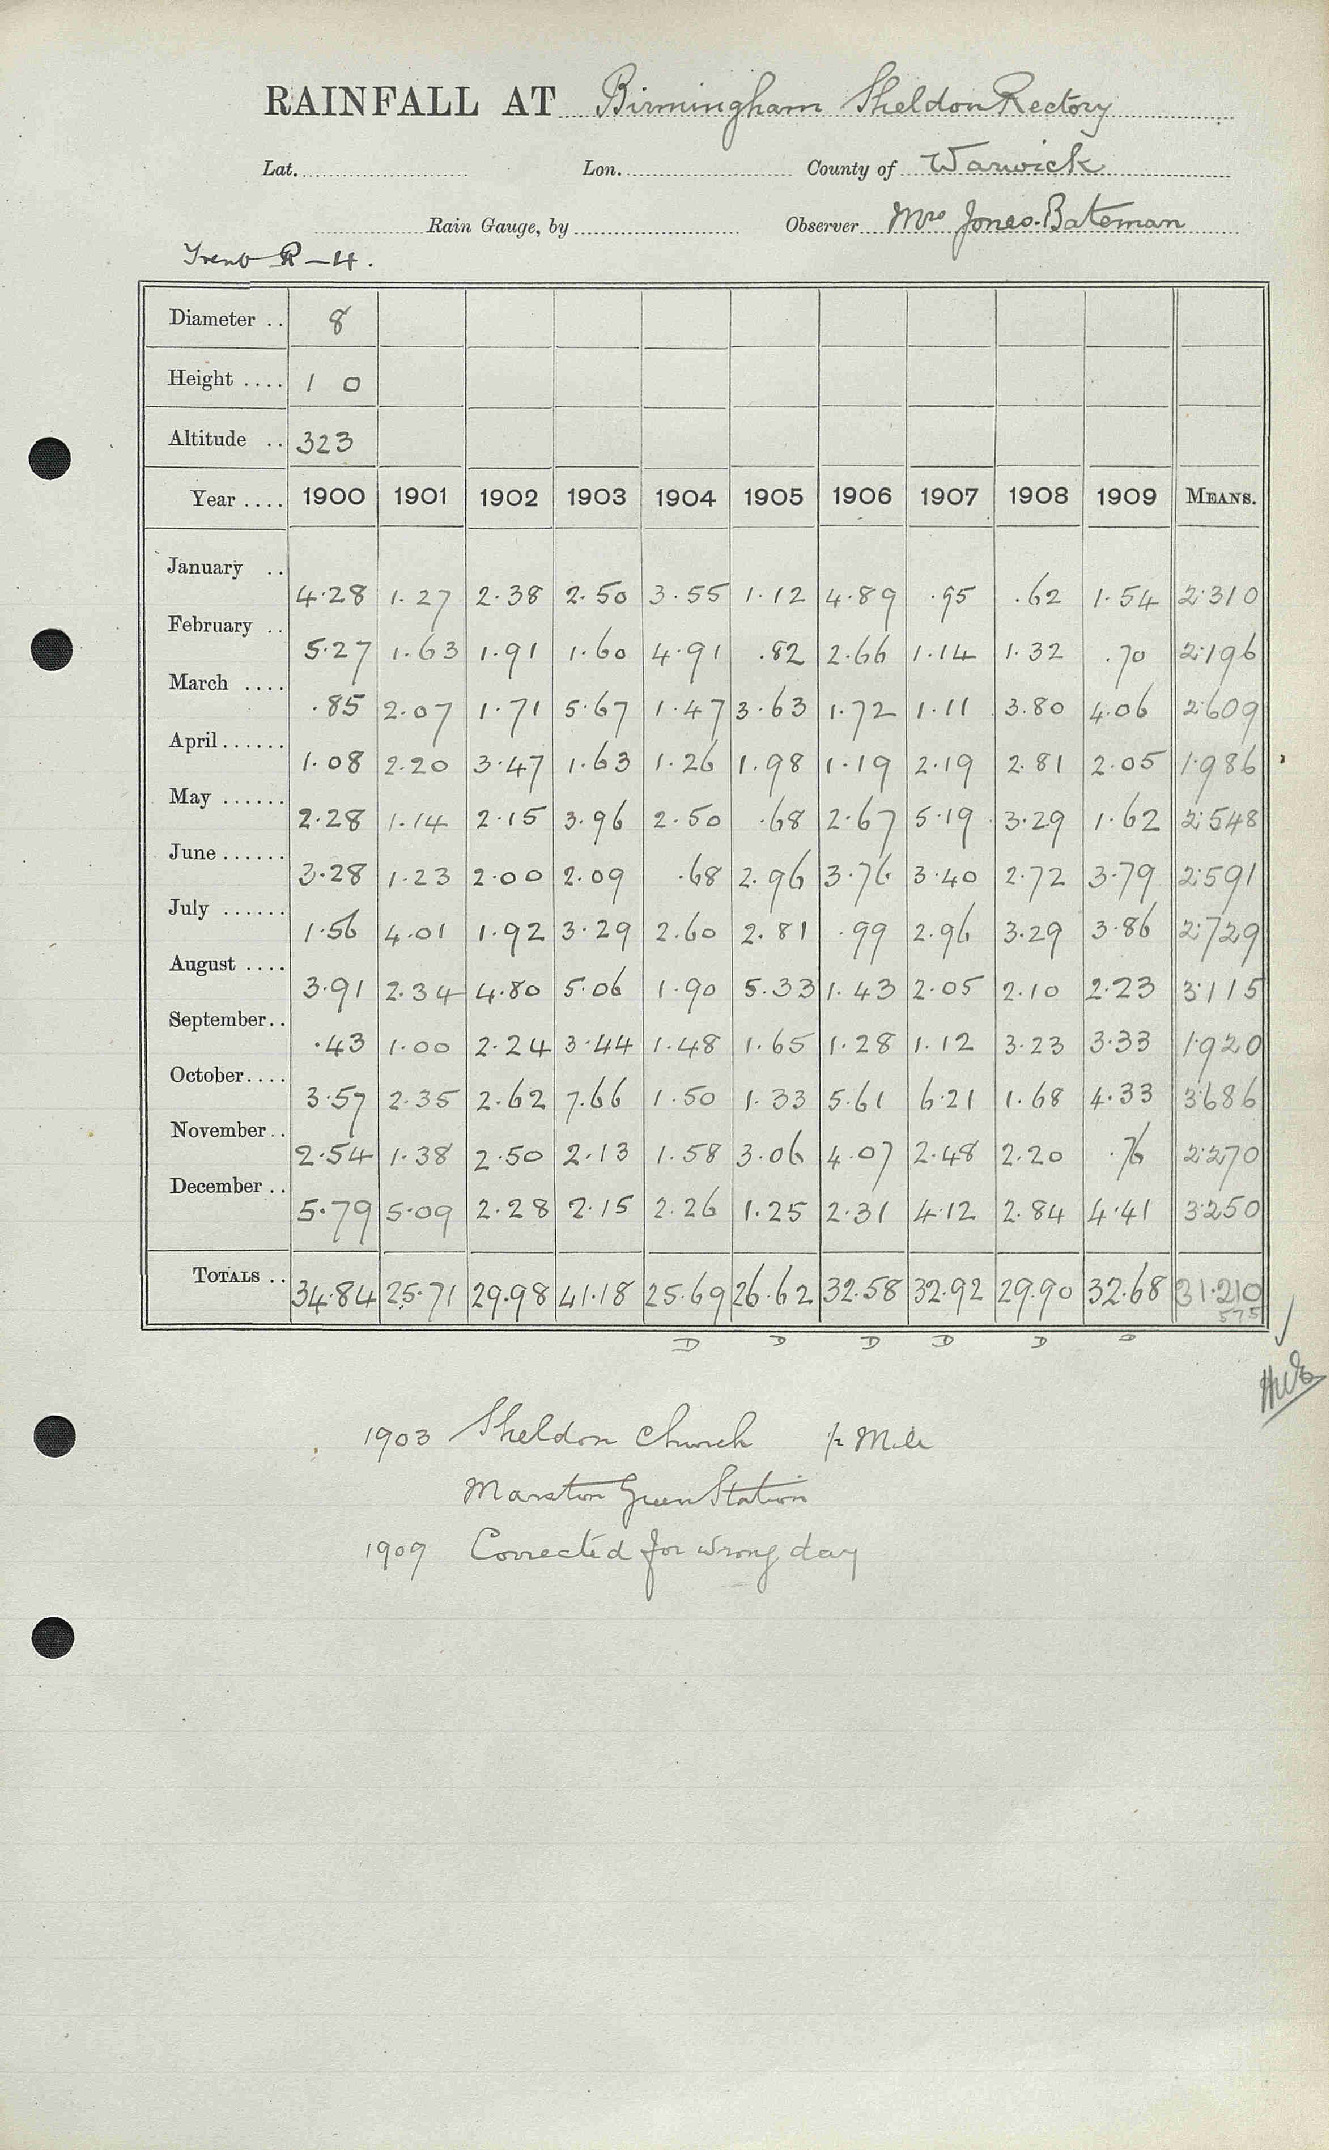 RAINFALL AT Birmingham Sheldon Rectory
Lat. Lon. County of Warwick
Rain Gauge, by Observer Mrs Jones-Bateman
Trent R-4.
Diameter .. 8
Height .... 1 0
Altitude .. 323
Year .... 1900 1901 1902 1903 1904 1905 1906 1907 1908 1909 MEANS.
January .. 4.28 1.27 2.38 2.50 3.55 1.12 4.89 .95 .62 1.54 2.310
February .. 5.27 1.63 1.91 1.60 4.91 .82 2.66 1.14 1.32 .70 2.196
March .... .85 2.07 1.71 5.67 1.47 3.63 1.72 1.11 3.80 4.06 2.609
April...... 1.08 2.20 3.47 1.63 1.26 1.98 1.19 2.19 2.81 2.05 1.986
May ...... 2.28 1.14 2.15 3.96 2.50 .68 2.67 5.19 3.29 1.62 2.548
June ...... 3.28 1.23 2.00 2.09 .68 2.96 3.76 3.40 2.72 3.79 2.591
July ...... 1.56 4.01 1.92 3.29 2.60 2.81 .99 2.96 3.29 3.86 2.729
August .... 3.91 2.34 4.80 5.06 1.90 5.33 1.43 2.05 2.10 2.23 3.115
September.. .43 1.00 2.24 3.44 1.48 1.65 1.28 1.12 3.23 3.33 1.920
October.... 3.57 2.35 2.62 7.66 1.50 1.33 5.61 6.21 1.68 4.33 3.686
November.. 2.54 1.38 2.50 2.13 1.58 3.06 4.07 2.48 2.20 .76 2.270
December .. 5.79 5.09 2.28 2.15 2.26 1.25 2.31 4.12 2.84 4.41 3.250
TOTALS .. 34.84 25.71 29.98 41.18 25.69 26.62 32.58 32.92 29.90 32.68 31.210
575
D D D D D D
1903 Sheldon Church ½ Mile
Marston Green Station
1909 Corrected for wrong day